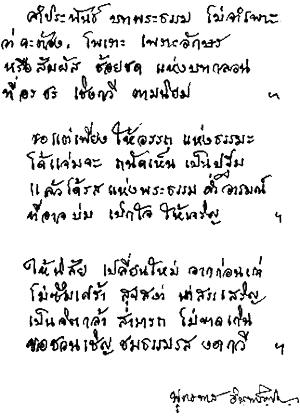 คำประพันธ์ บทพระธรรม ไม่จำเพาะ
ว่าจะต้อง ไพเราะ เพราะอักษร
หรือสัมผัส ช้อยชด แห่งบทกลอน
ที่อรชร เชิงกวี ตามนิยม ฯ
ขอแต่เพียง ให้อรรถ แห่งธรรมะ
ได้แจ่มจะ ถนัดเห็น เป็นปฐม
แล้วได้รส แห่งพระธรรม ด่ำอารมณ์
ที่อาจบ่ม เบิกใจ ให้เจริญ ฯ
ให้นิสัย เปลี่ยนใหม่ จากก่อนเก่า
ไม่ซึมเศร้า สุขสง่า น่าสรรเสริญ
เป็นจิตกล้า สามารถ ไม่ขาดเกิน
ขอชวนเชิญ ชมธรรมรส งดกวี ฯ
พุทธทาส อินทปัญโญ